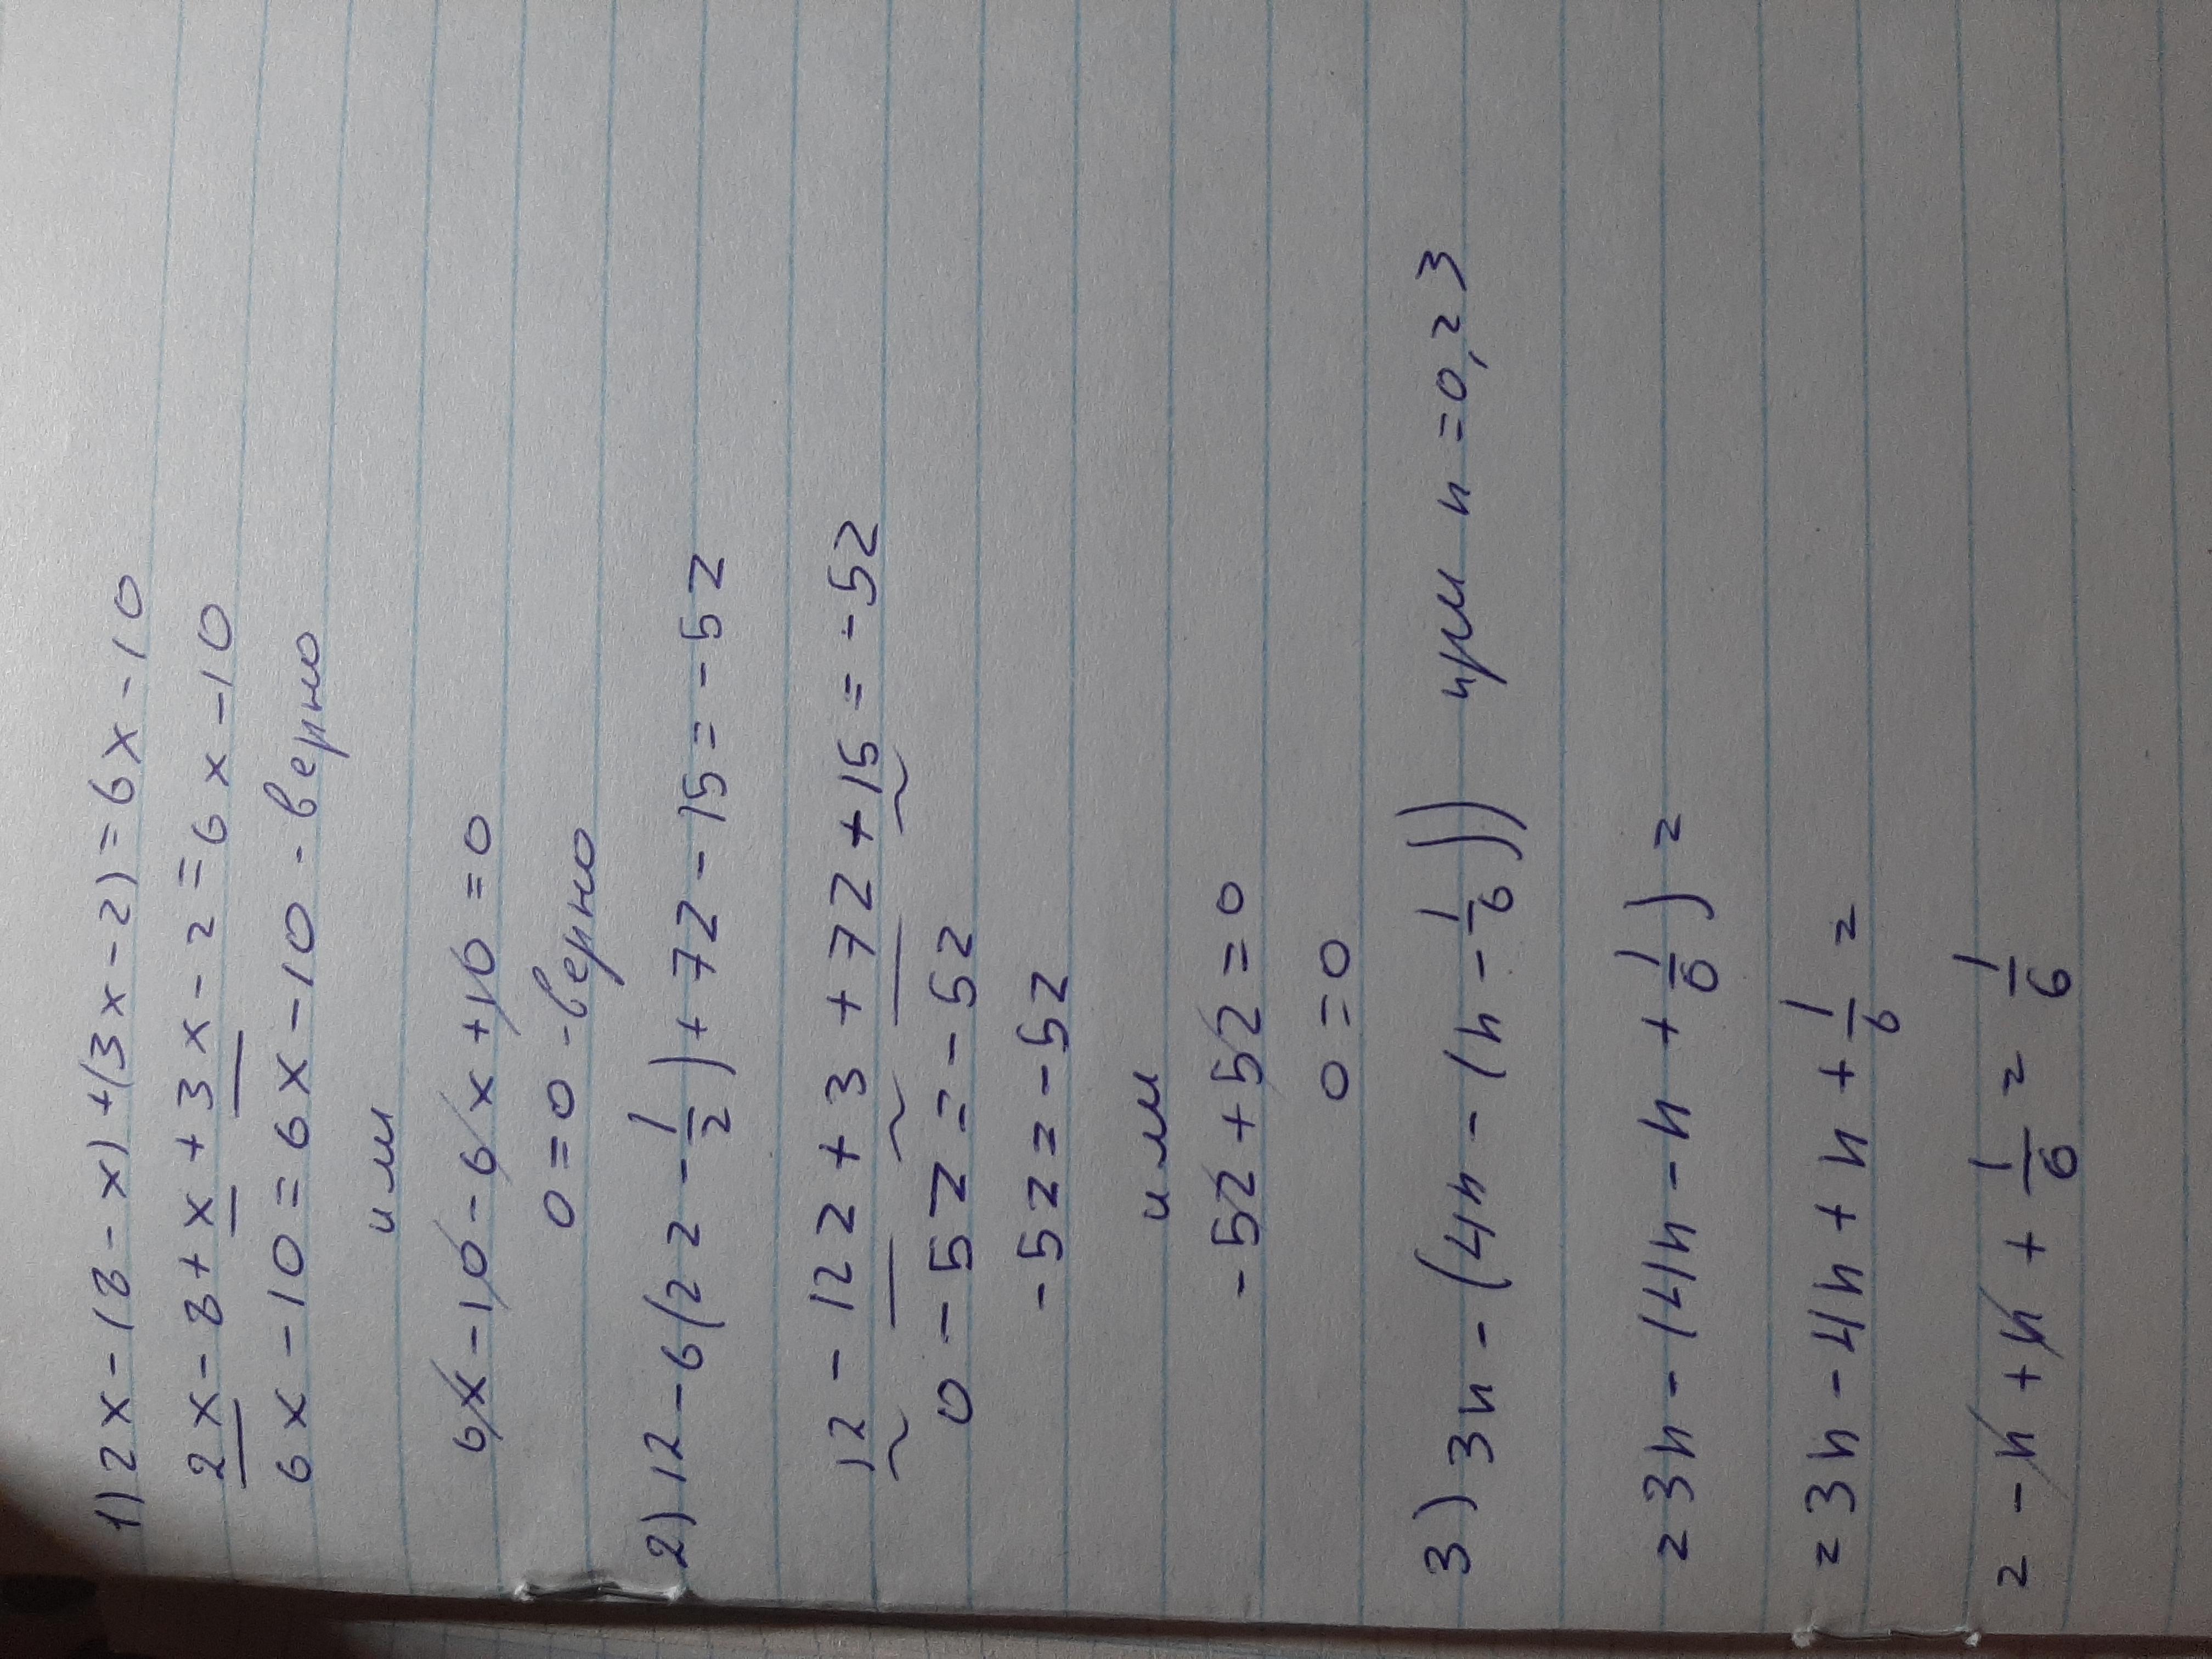 1) 2x-(8-x)+(3x-2)=6x-10
2x-8+x+3x-2=6x-10
6x-10=6x-10 - верно
или
6x-10-6x+10=0
0=0 - верно
2) 12-6(2z-1/2)+7z-15=-5z
12-12z+3+7z+15=-5z
0-5z=-5z
-5z=-5z
или
-5z+5z=0
0=0
3) 3n-(4n-(n-1/6)) при n=0,23
=3n-(4n-n+1/6)=
=3n-4n+n+1/6=
=-n+n+1/6=1/6